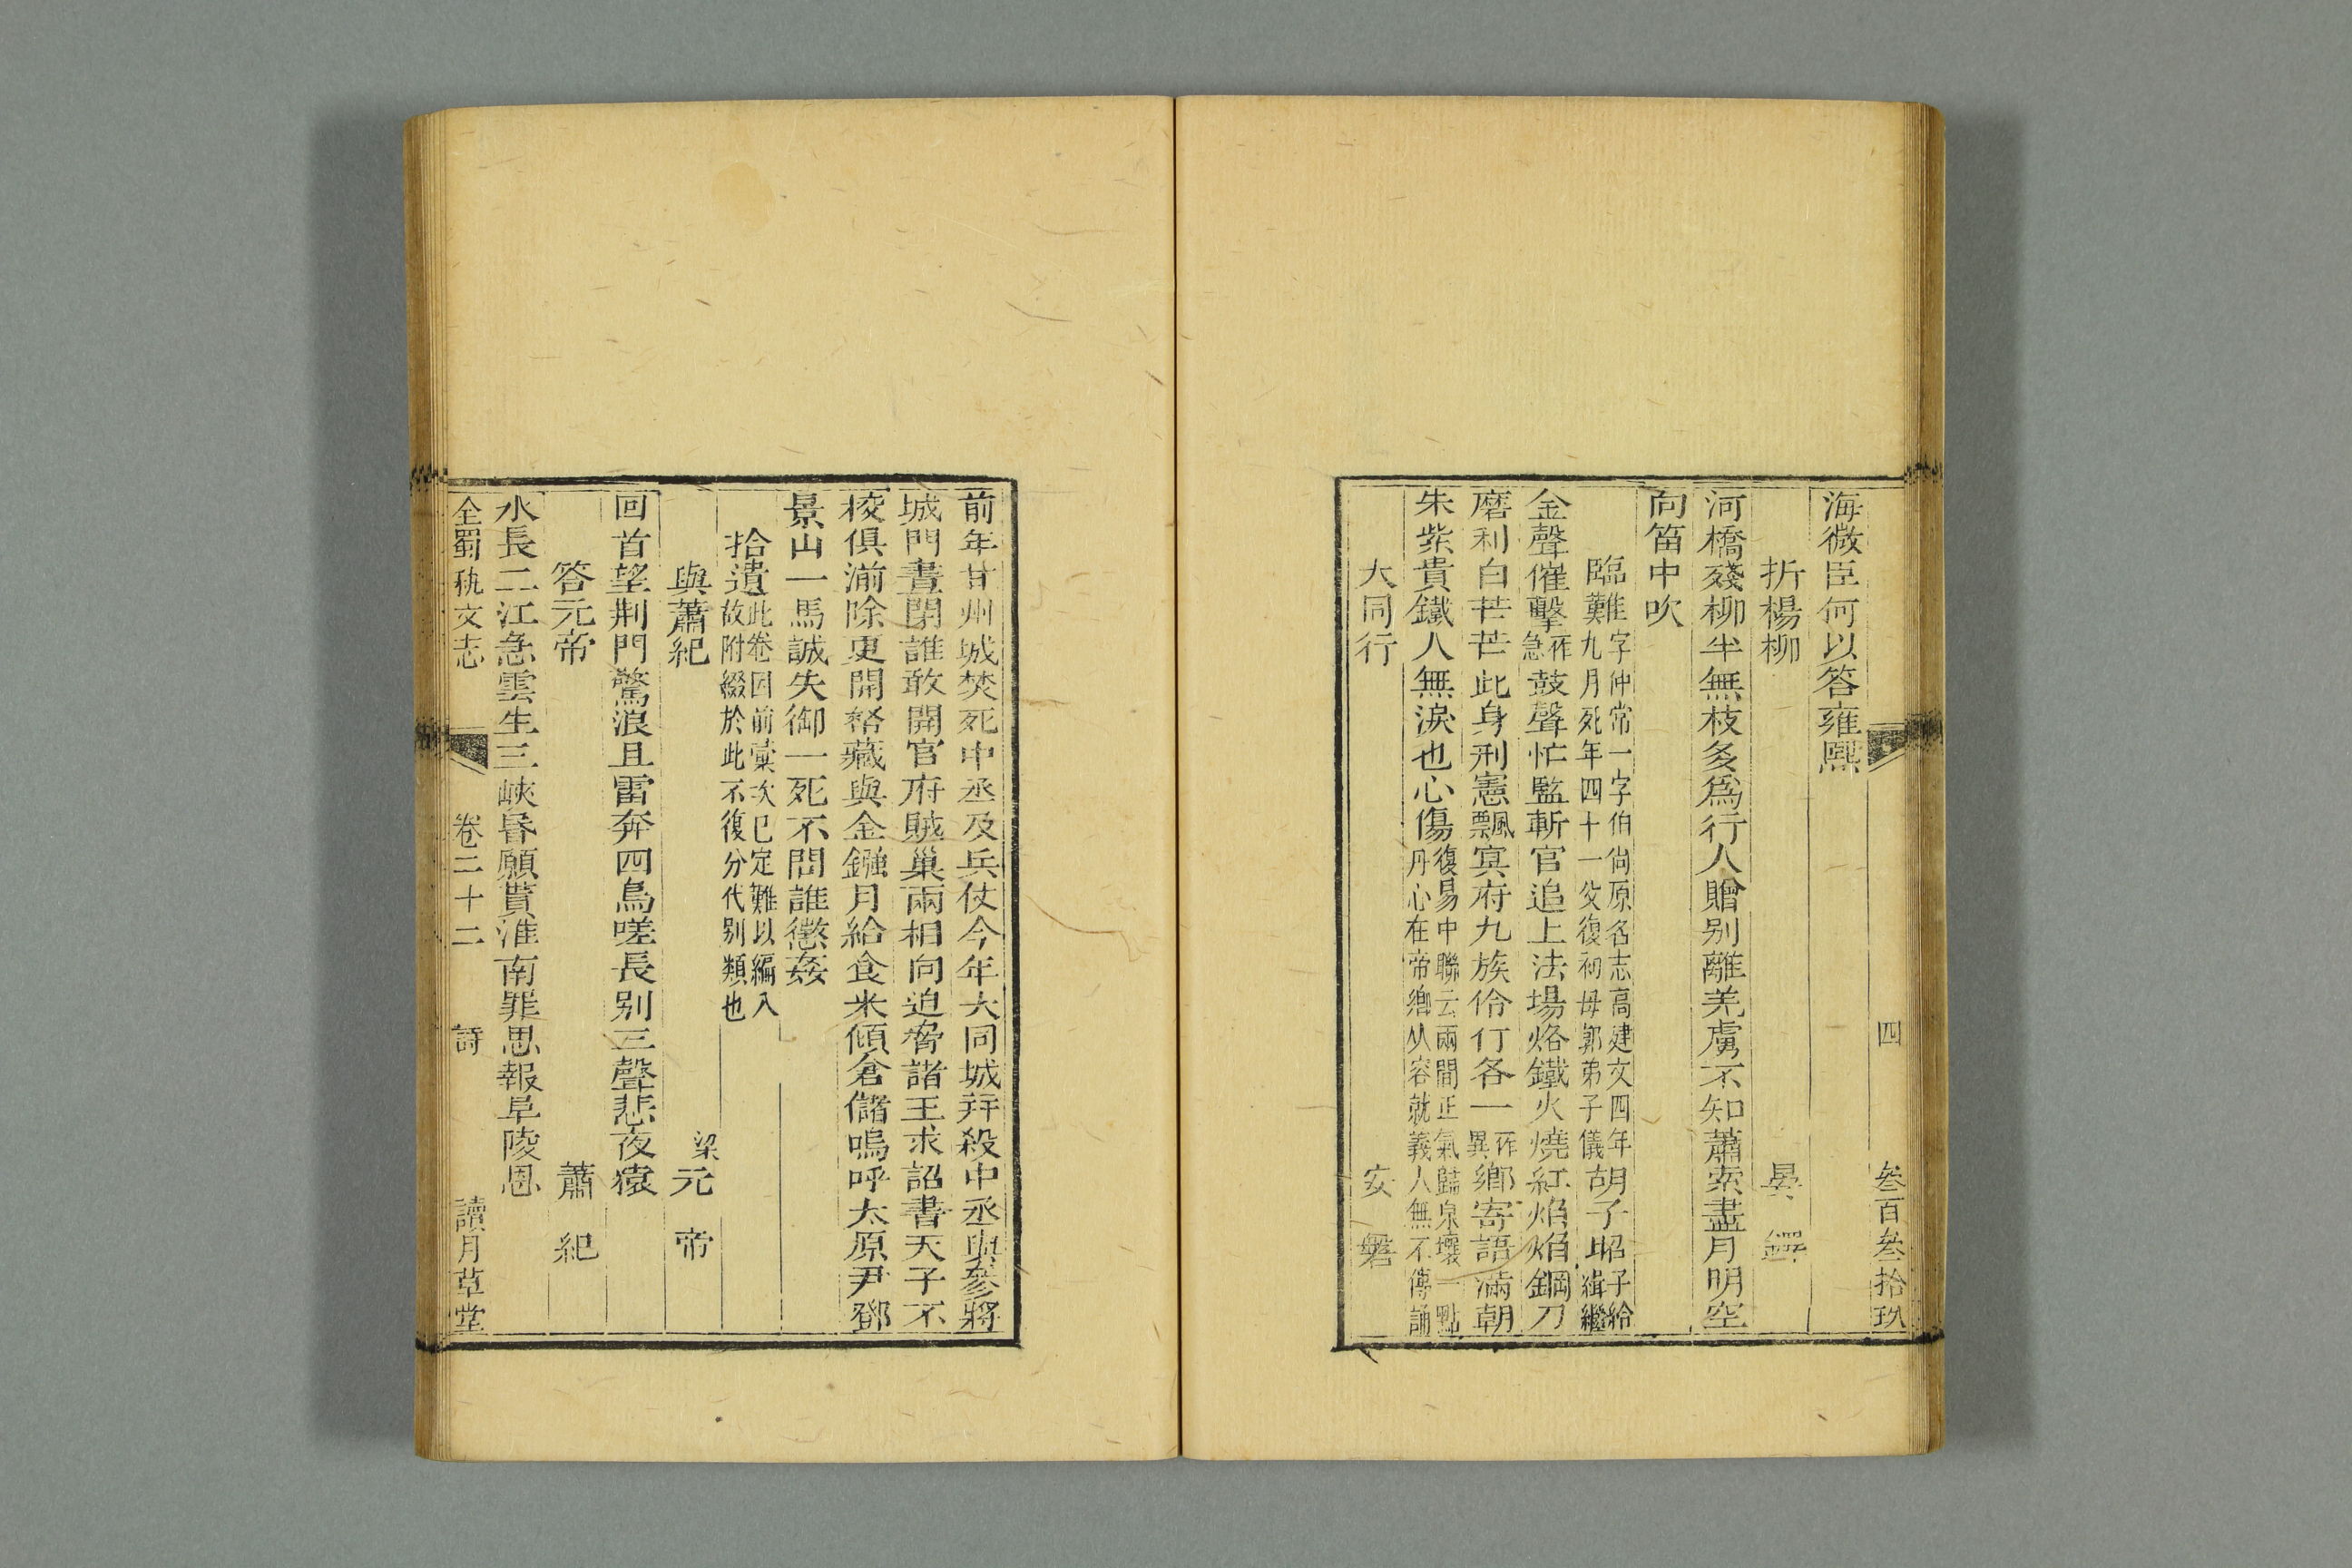 海微臣何以答雍熙
折楊柳 晏鐸
河橋殘柳半無枝多爲行人贈别離羌虜不知蕭索盡月明空
向笛中吹
臨難 難字仲常一字伯尚原名志高建文四年九月死年四十一父復初母郭弟子儀 胡子昭 子給緝繼
金聲催擊 一作急 鼓聲忙監斬官追上法場烙鐵火燒紅焰焰鋼刀
磨利白芒芒此身刑憲飄寞府九族伶仃各一 一作異 鄉寄語滿朝
朱紫貴鐵人無淚也心傷 復易中聯云兩間正氣歸泉壤一點丹心在帝鄉從容就義人無不傳誦
大同行 安磐
四 叁百叁拾玖
前年甘州城焚死中丞及兵仗今年大同城并殺中丞與參將
城門晝閉誰敢開官府賊巢兩相向迫脅諸王求詔書天子不
棱俱湔除更開帑藏與金鏹月給食米傾倉儲嗚呼太原尹鄧
景山一馬誠失御一死不問誰懲姦
拾遺 此卷因前彙次已定難以編入故附綴於此不復分代别類也
與蕭紀 梁元帝
回首望荆門驚浪且雷奔四鳥嗟長别三聲悲夜猿
答元帝 蕭紀
水長二江急雲生三峽昏願貰淮南罪思報阜陵恩
全蜀秇文志 卷二十二 詩 讀月草堂